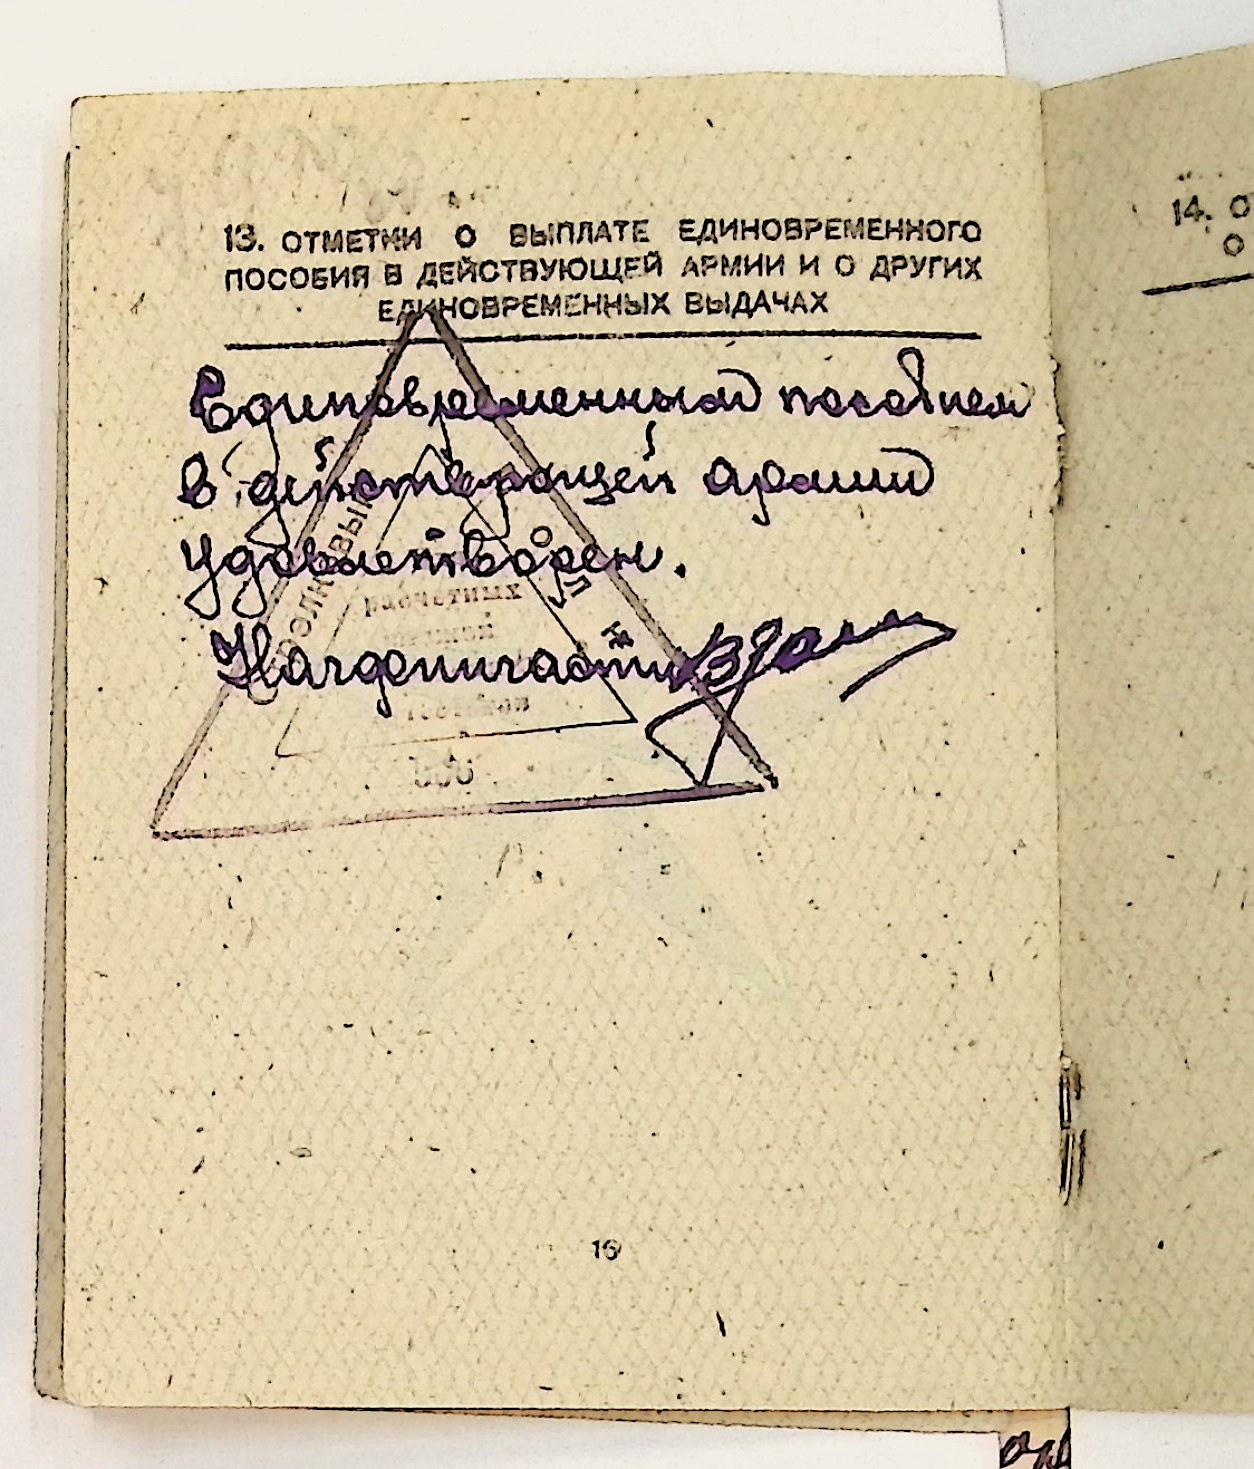 13. ОТМЕТКИ О ВЫПЛАТЕ ЕДИНОВРЕМЕННОГО
ПОСОБИЯ В ДЕЙСТВУЮЩЕЙ АРМИИ И О ДРУГИХ
ЕДИНОВРЕМЕННЫХ ВЫДАЧАХ
Единовременным пособием
в действующей армии
удовлетворен.
Начфинчасти
расчетных
16
14. О
О